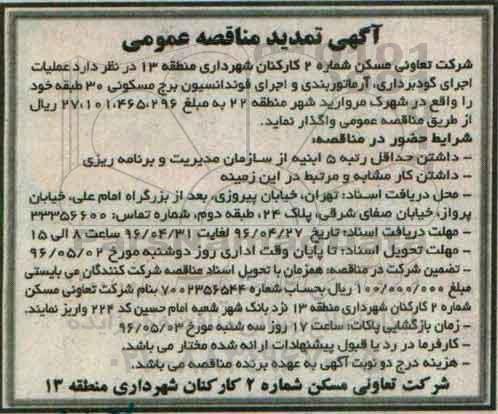 آگهی تمدید مناقصه عمومی
شرکت تعاونی مسکن شماره ۲ کارکنان شهرداری منطقه ۱۳ در نظر دارد عملیات
اجرای گودبرداری، آرماتوربندی و اجرای فونداسیون برج مسکونی ۳۰ طبقه خود
را واقع در شهرک مروارید شهر منطقه ۲۲ به مبلغ ۲۷،۱۰۱،۴۶۵،۲۹۶ ریال
از طریق مناقصه عمومی واگذار نماید.
شرایط حضور در مناقصه:
- داشتن حداقل رتبه ۵ ابنیه از سازمان مدیریت و برنامه ریزی
- داشتن کار مشابه و مرتبط در این زمینه
- محل دریافت اسناد: تهران، خیابان پیروزی، بعد از بزرگراه امام علی، خیابان
پرواز، خیابان صفای شرقی، پلاک ۲۴، طبقه دوم، شماره تماس: ۳۳۳۵۶۶۰۰
- مهلت دریافت اسناد: تاریخ ۹۶/۰۴/۲۷ لغایت ۹۶/۰۴/۳۱ ساعت ۸ الی ۱۵
- مهلت تحویل اسناد: تا پایان وقت اداری روز دوشنبه مورخ ۹۶/۰۵/۰۲
- تضمین شرکت در مناقصه: همزمان با تحویل اسناد مناقصه شرکت کنندگان می بایستی
مبلغ ۱۰۰/۰۰۰/۰۰۰ ریال بحساب شماره ۷۰۰۲۳۵۶۵۴۴ بنام شرکت تعاونی مسکن
شماره ۲ کارکنان شهرداری منطقه ۱۳ نزد بانک شهر شعبه امام حسین کد ۲۲۴ واریز نمایند.
- زمان بازگشایی پاکات: ساعت ۱۷ روز سه شنبه مورخ ۹۶/۰۵/۰۳
- کارفرما در رد یا قبول پیشنهادات ارائه شده مختار می باشد.
- هزینه درج دو نوبت آگهی به عهده برنده مناقصه می باشد.
شرکت تعاونی مسکن شماره ۲ کارکنان شهرداری منطقه ۱۳